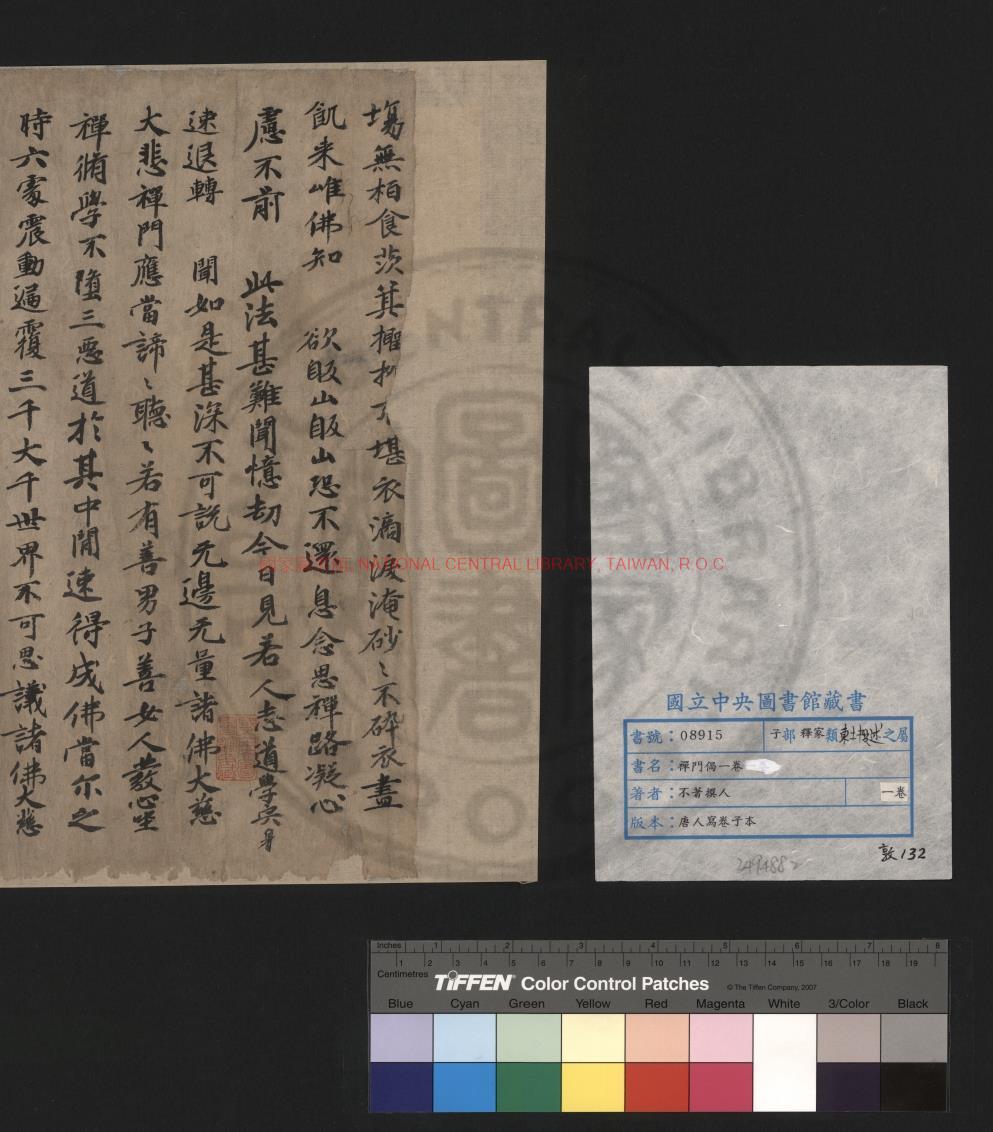 塲無柏食茨箕擢 堪衣滴淚淹砂〻不碎衣盡
飢来唯佛知 欲皈山皈山恐不還息念思禪路凝心
慮不前 此法甚難聞憶劫今日見若人志道學 身
速退轉 聞如是甚深不可說无邊无量諸佛大慈
大悲禪門應當諦〻聽〻若有善男子善女人裝心坐
禪脩學不墮三惡道於其中間速得成佛當尓之
時六震動遍覆三千大千世界不可思議諸佛大慈
NATIONAL CENTRAL LIBRARY, TAIWAN, R.O.C
國立中央圖書館藏書
書號：08915
子部 釋家類 之屬
書名：禪門偈一卷
著者：不著撰人
一卷
版本：唐人寫卷子本
敦132
Inches 1 2 3 4 5 6 7 8
1 2 3 4 5 6 7 8 9 10 11 12 13 14 15 16 17 18 19
Centimetres
TIFFEN® Color Control Patches
© The Tiffen Company, 2007
Blue Cyan Green Yellow Red Magenta White 3/Color Black